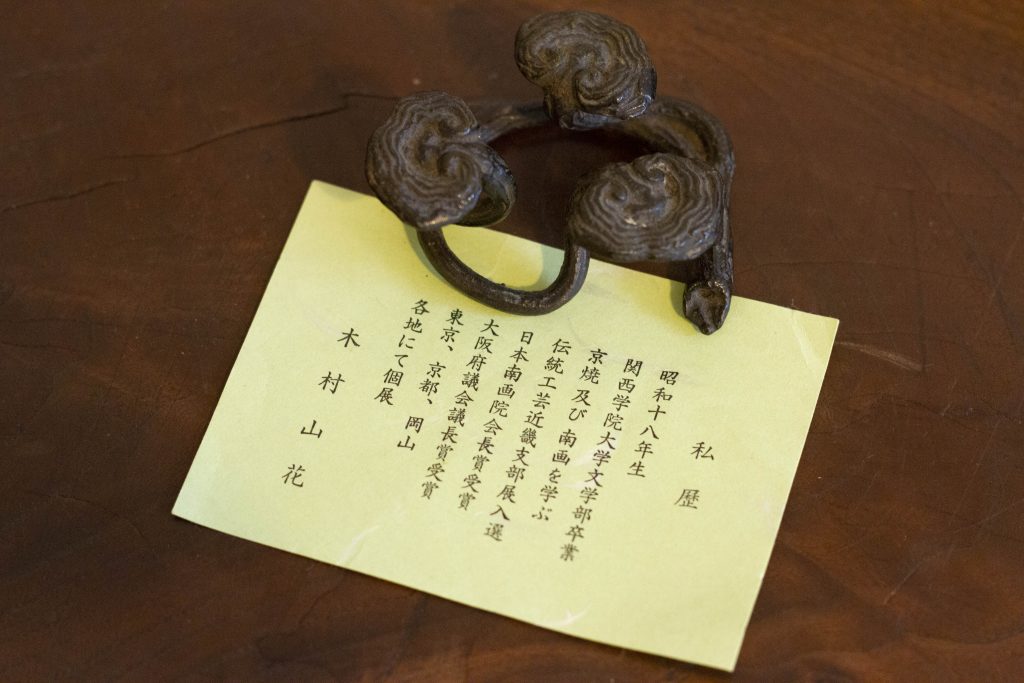 私歴
昭和十八年生
関西学院大学文学部卒業
京焼及び南画を学ぶ
伝統工芸近畿支部展入選
日本南画院会長賞受賞
大阪府議会議長賞受賞
東京、京都、岡山
各地にて個展
木村山花